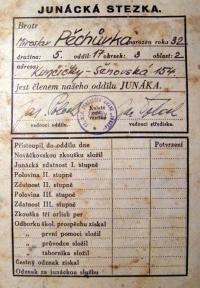 JUNÁCKÁ STEZKA.
Bratr
Miroslav Pěchůvka narozen roku 32
družina: 5. oddíl 17 okrsek: 3 oblast: 2
adresa: Kunčičky - Šenovská 154.
jest členem našeho oddílu JUNÁKA.
vedoucí oddílu.
vedoucí střediska.
Přistoupil do oddílu dne
Potvrzení
Nováčkovskou zkoušku složil
Junácká zdatnost I. stupně
Polovina II. stupně
Zdatnost II. stupně
Polovina III. stupně
Zdatnost III. stupně
Zkoušku tří orlích per
Odborku škol. prospěchu získal
„ první pomoci složil
„ průvodce složil
„ táborníka složil
Čestný odznak získal
Odznak za junáckou službu